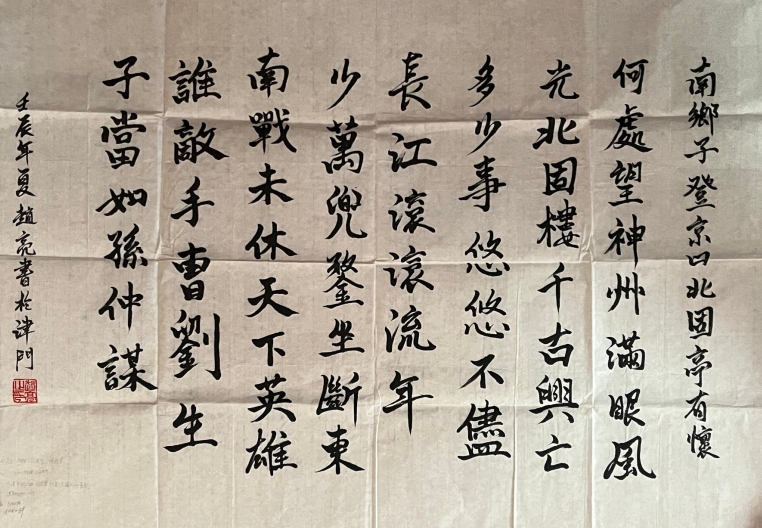 南鄉子登京口北固亭有懷
何處望神州滿眼風
光北固樓千古興亡
多少事悠悠不儘
長江滾滾流年
少萬兜鍪坐斷東
南戰未休天下英雄
誰敵手曹劉生
子當如孫仲謀
壬辰年夏趙亮書於津門